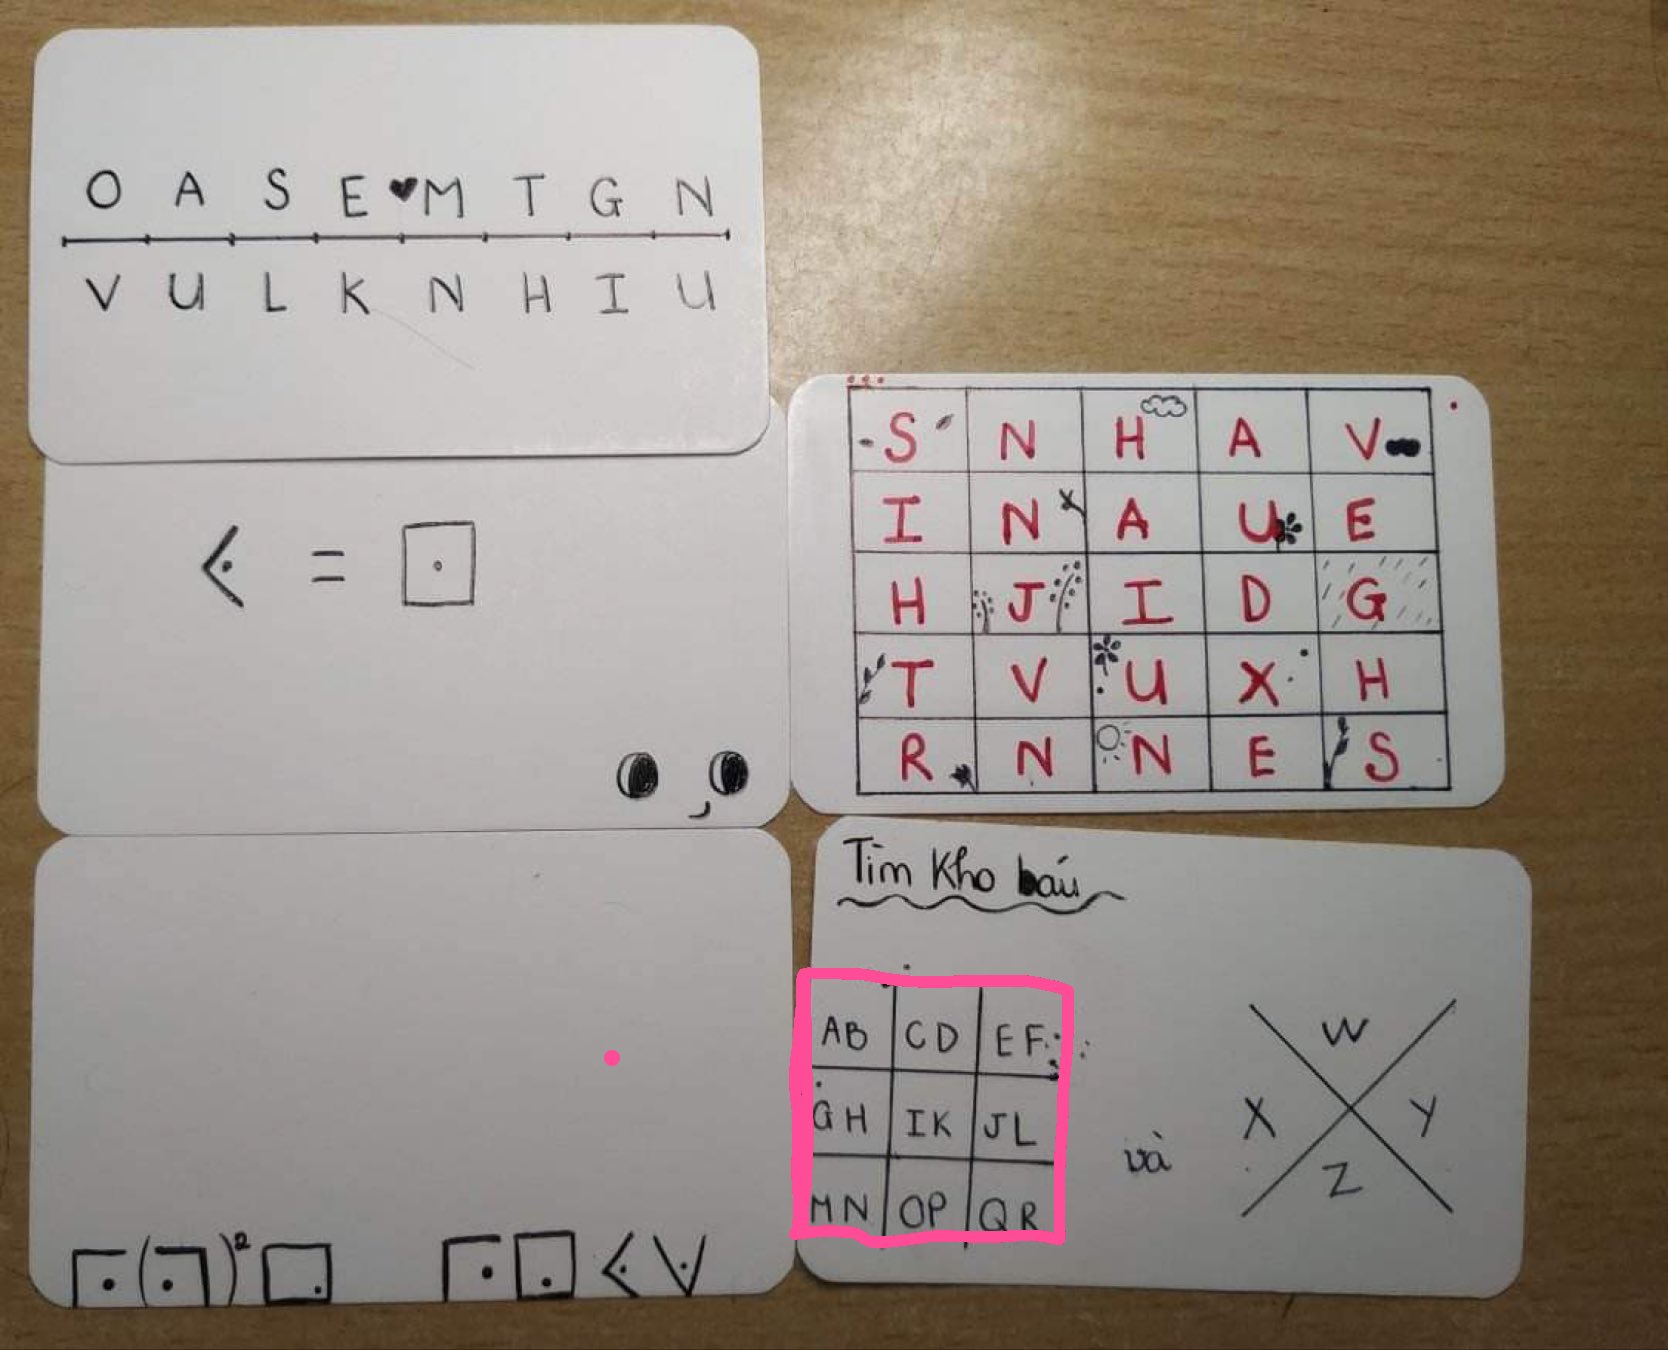 O A S E ♥ M T G N
V U L K N H I U
< =
S N H A V
I N A U E
H J I D G
T V U X H
R N N E S
( )²
< V
Tìm Kho báu
AB CD EF
GH IK JL
MN OP QR
và
W
X Y
Z